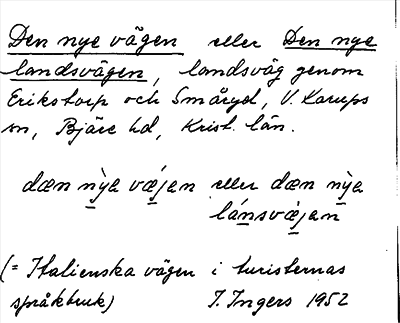 Den nye vägen eller Den nye
landsvägen, landsväg genom
Erikstorp och Småryd, V. Karups
sn, Bjäre hd, Krist. län.
dæn nỳa væ̀jan eller dæn nỳa
lánsvæ̀jan
(= Italienska vägen i turisternas
språkbruk) I. Ingers 1952